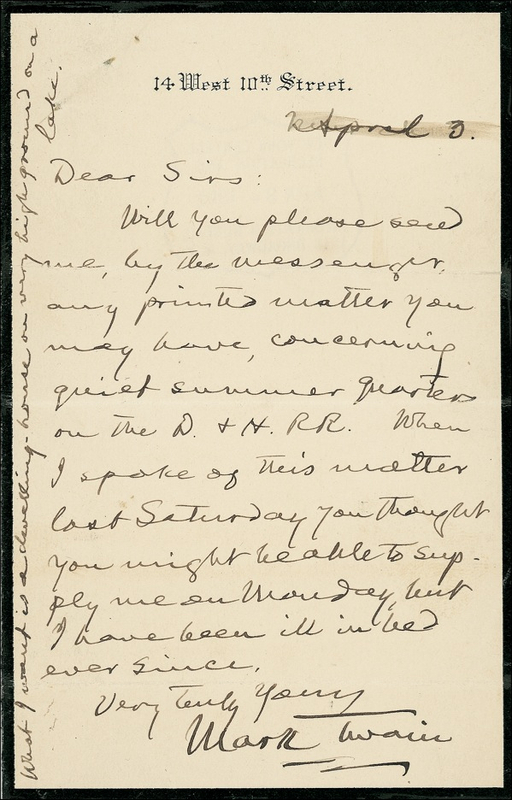 14 West 10th Street.
April 3.
Dear Sirs:
Will you please send
me, by the messenger,
any printed matter you
may have, concerning
quiet summer quarters
on the D. & H. RR. When
I spoke of this matter
last Saturday you thought
you might be able to sup-
ply me on Monday, but
I have been ill in bed
ever since.
Very truly Yours
Mark Twain
What I want is a dwelling-house on very high ground on a
lake.